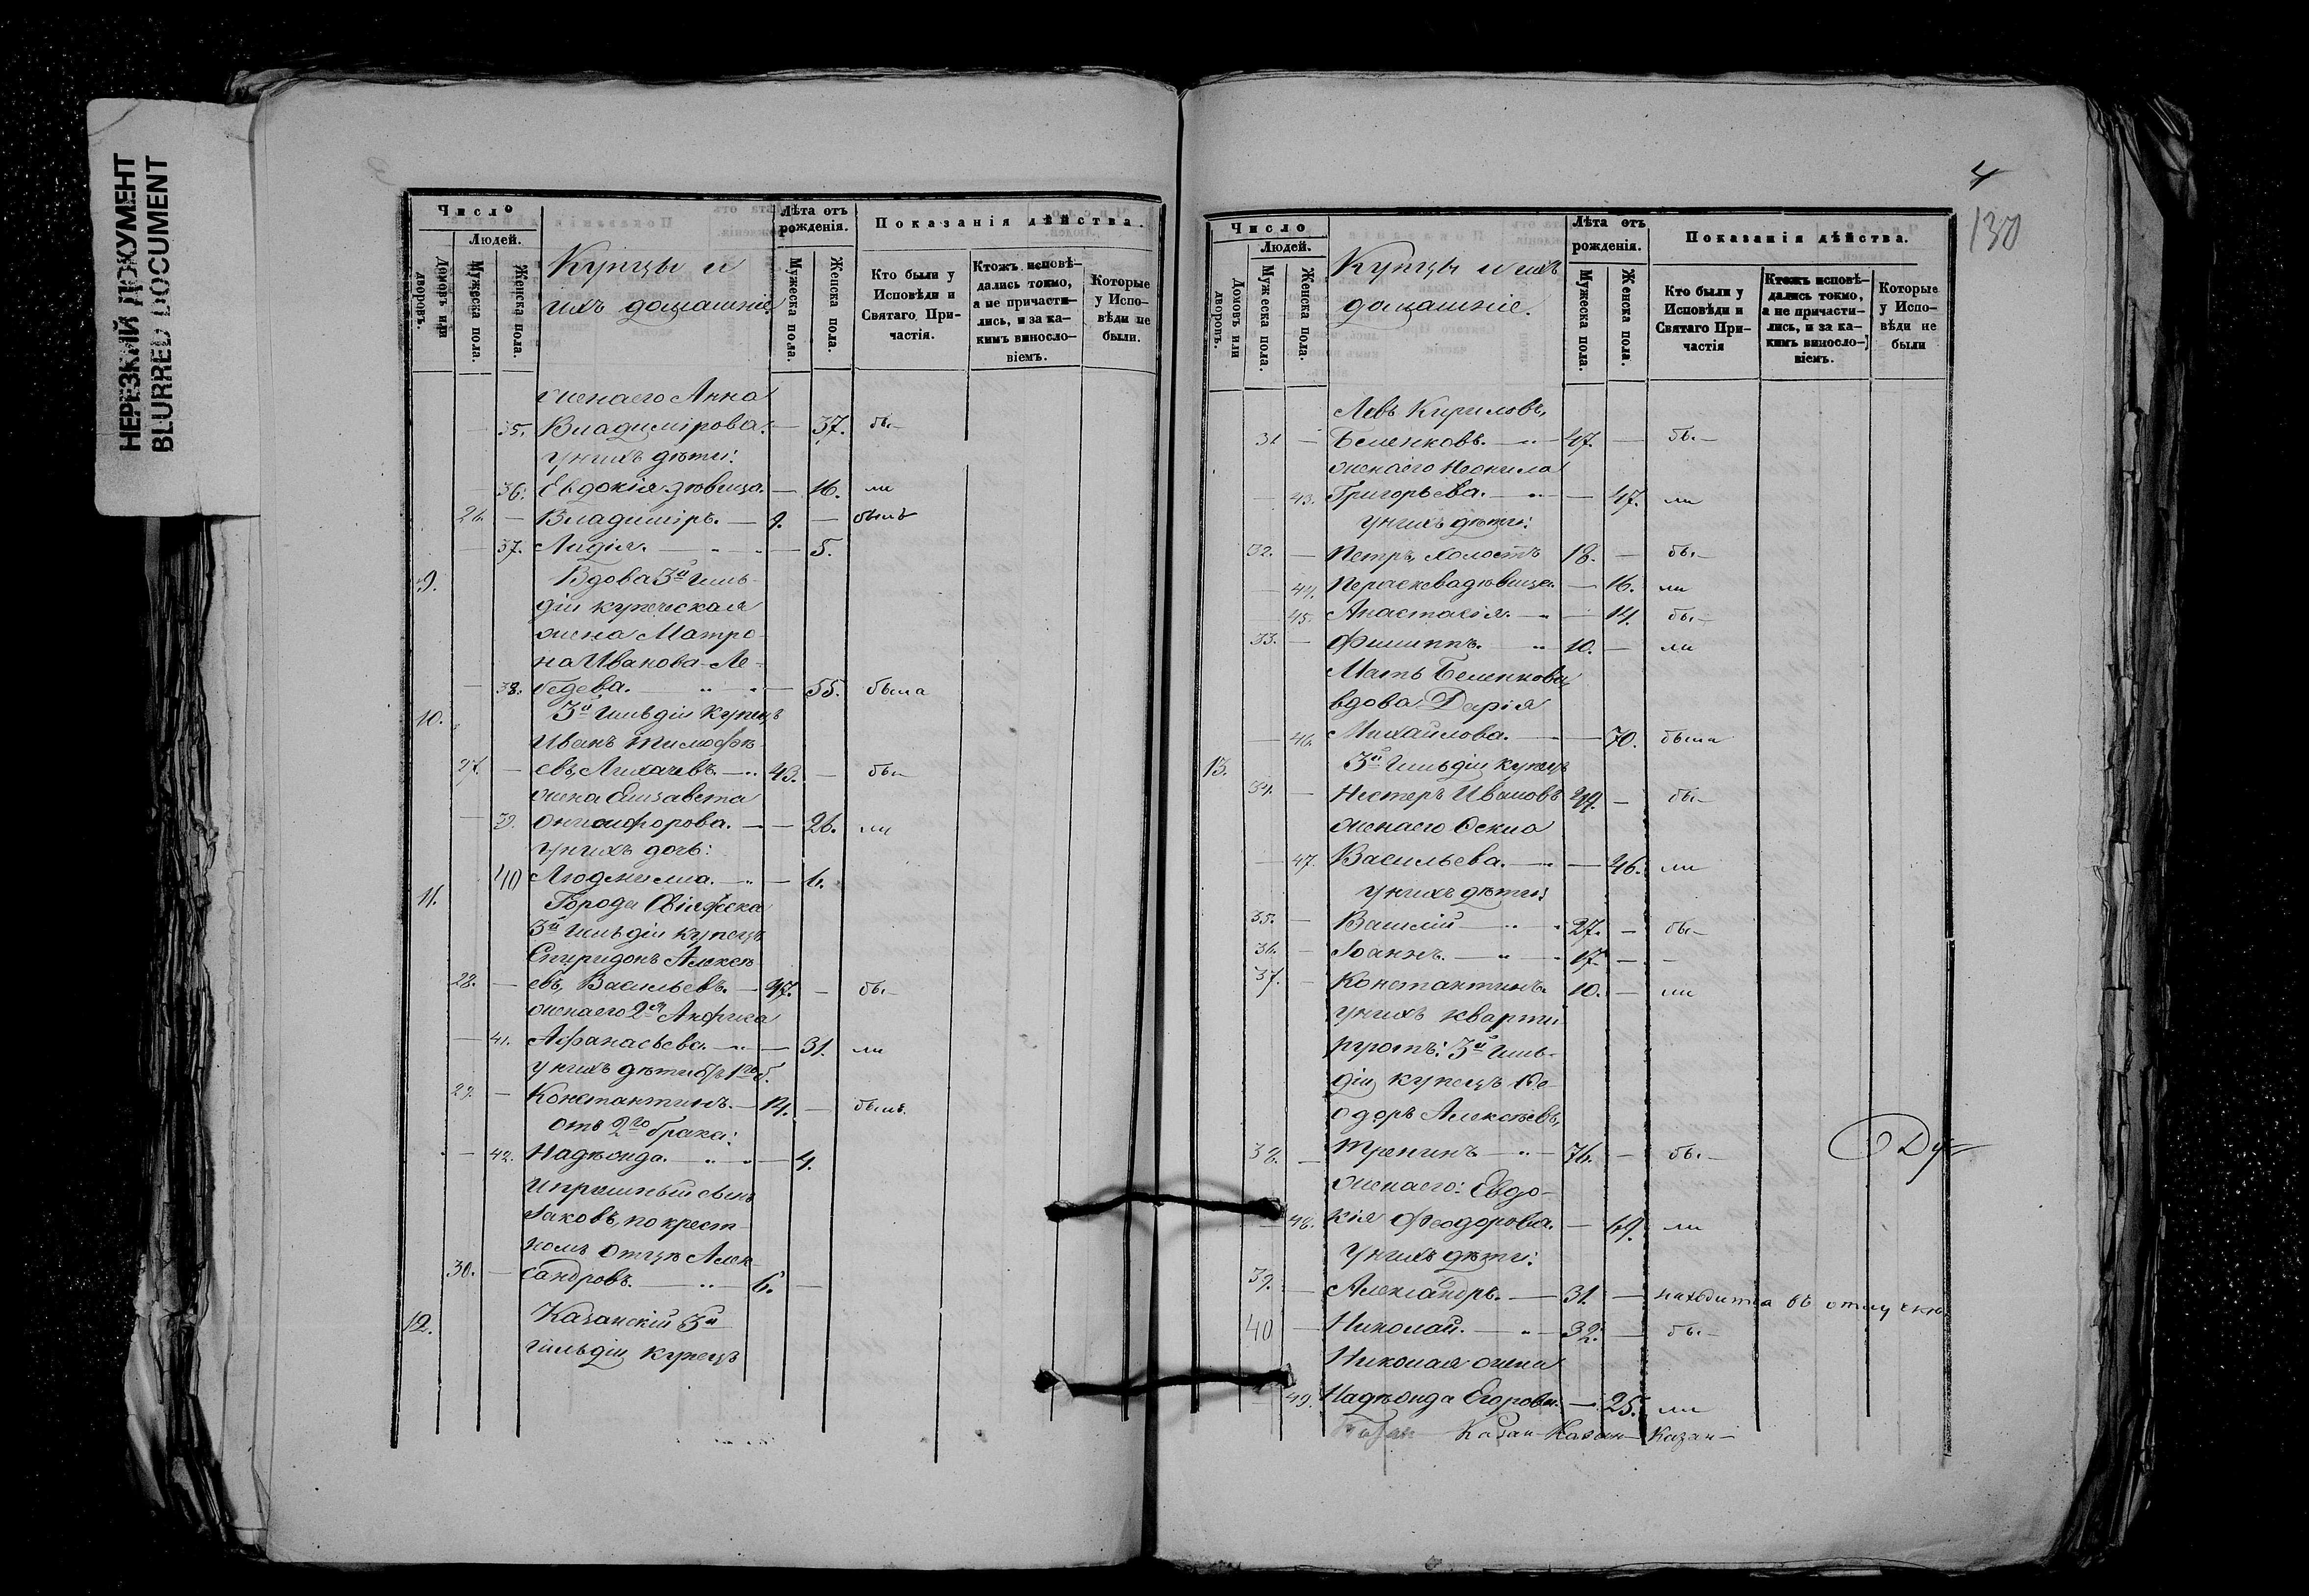 НЕРЕЗКИЙ ДОКУМЕНТ
BLURRED DOCUMENT
Число
Людей.
Домовъ или дворовъ.
Мужеска пола.
Женска пола.
Купцы и
ихъ домашніе.
Лѣта отъ рожденія.
Мужеска пола.
Женска пола.
Показанія дѣйства.
Кто были у Исповѣди и Святаго Причастія.
Ктожъ исповѣ-
дались токмо,
а не причасти-
лись, и за ка-
кимъ винносло-
віемъ.
Которые
у Испо-
вѣди не
были.
жена его Анна
35. Владимірова. — 37. бы—
у нихъ дѣти:
36. Евдокія дѣвица. — 16. ли
26. — Владиміръ. — 9. — былъ
37. Лидія. — 5.
9. Вдова 3й гиль-
діи купеческая
жена Матро-
на Иванова Ле-
38. бедева. — 55. была
10. 3й гильдіи купецъ
Иванъ Тимофѣ-
27. — евъ, Лихачевъ. — 43. — бы—
жена Елизавета
39. Онисифорова. — 26. ли
у нихъ дочь:
40 Людмила. — 6.
11. Города Свіяжска
3й гильдіи купецъ
Спиридонъ Алексѣ-
28. — евъ, Васильевъ. — 47. — бы—
жена его 2я Анфиса
41. Афанасьева. — 31. ли
у нихъ дѣти отъ 1го б.
29. — Константинъ. — 14. — былъ.
отъ 2го брака:
42. Надѣжда. — 4.
и пріемный сынъ
Іаковъ, по крест-
номъ отцѣ Алек-
30. — сандровъ. — 6. —
12. Казанскій 3й
гильдіи купецъ
4
130
Число
Людей.
Домовъ или дворовъ.
Мужеска пола
Женска пола.
Купцы и ихъ
домашніе.
Лѣта отъ рожденія.
Мужеска пола.
Женска пола.
Показанія дѣйства.
Кто были у Исповѣди и Святаго Причастія
Ктожъ исповѣ-
дались токмо,
а не причасти-
лись, и за ка-
кимъ винносло-
віемъ.
Которые
у Испо-
вѣди не
были
Левъ Кириловъ,
31 — Беленковъ. — 47. — бы—
жена его Неонила
43. Григорьева. — 47. ли
у нихъ дѣти:
32. — Петръ, холостъ 18. — бы—
44. Параскева дѣвица. — 16. ли
45. Анастасія. — 14. бы—
33. — Филиппъ. 10. — ли
Мать Беленкова,
вдова Дарія
46. Михайлова. — 70. была
13. 3й гильдіи купецъ
34. — Нестеръ Ивановъ 49. — бы—
жена его Оекла
47. Васильева. — 46. ли
у нихъ дѣти:
35. — Василій — 27. — бы—
36. — Іоаннъ. — 17. — —
37. — Константинъ. 10. — ли
у нихъ кварти-
руютъ: 3й гиль-
діи купецъ Ѳе-
одоръ Алексѣевъ,
38. — Тренинъ — 76. — бы—
жена его: Евдо-
48. кія Феодорова. — 69. ли
у нихъ дѣти:
39. — Александръ. — 31. — находится въ отлучкѣ
40 — Николай. — 32. — бы—
Николая жена
49. Надѣжда Егорова. — 25. ли
Казан— Казан— Казан—